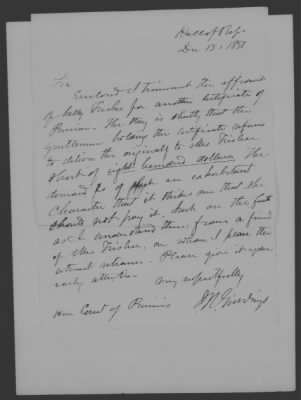 Hall of Reps
Dec 15. 1851
Sir
Enclosed I transmit the affidavit
of Frisbie for another Certificate of
Pension. The story is shortly that the
gentleman holding the certificate refuses
to deliver the original to Mrs Frisbie
short of eight hundred dollars. The
demand is of an exhorbitant
character that it strikes me that she
should not pay it. Such are the facts
as I understand them from a friend
of Mrs Frisbie, on whom I place the
utmost reliance. Please give it your
early attention
very respectfully
Hon Com of Pensions J R Giddings